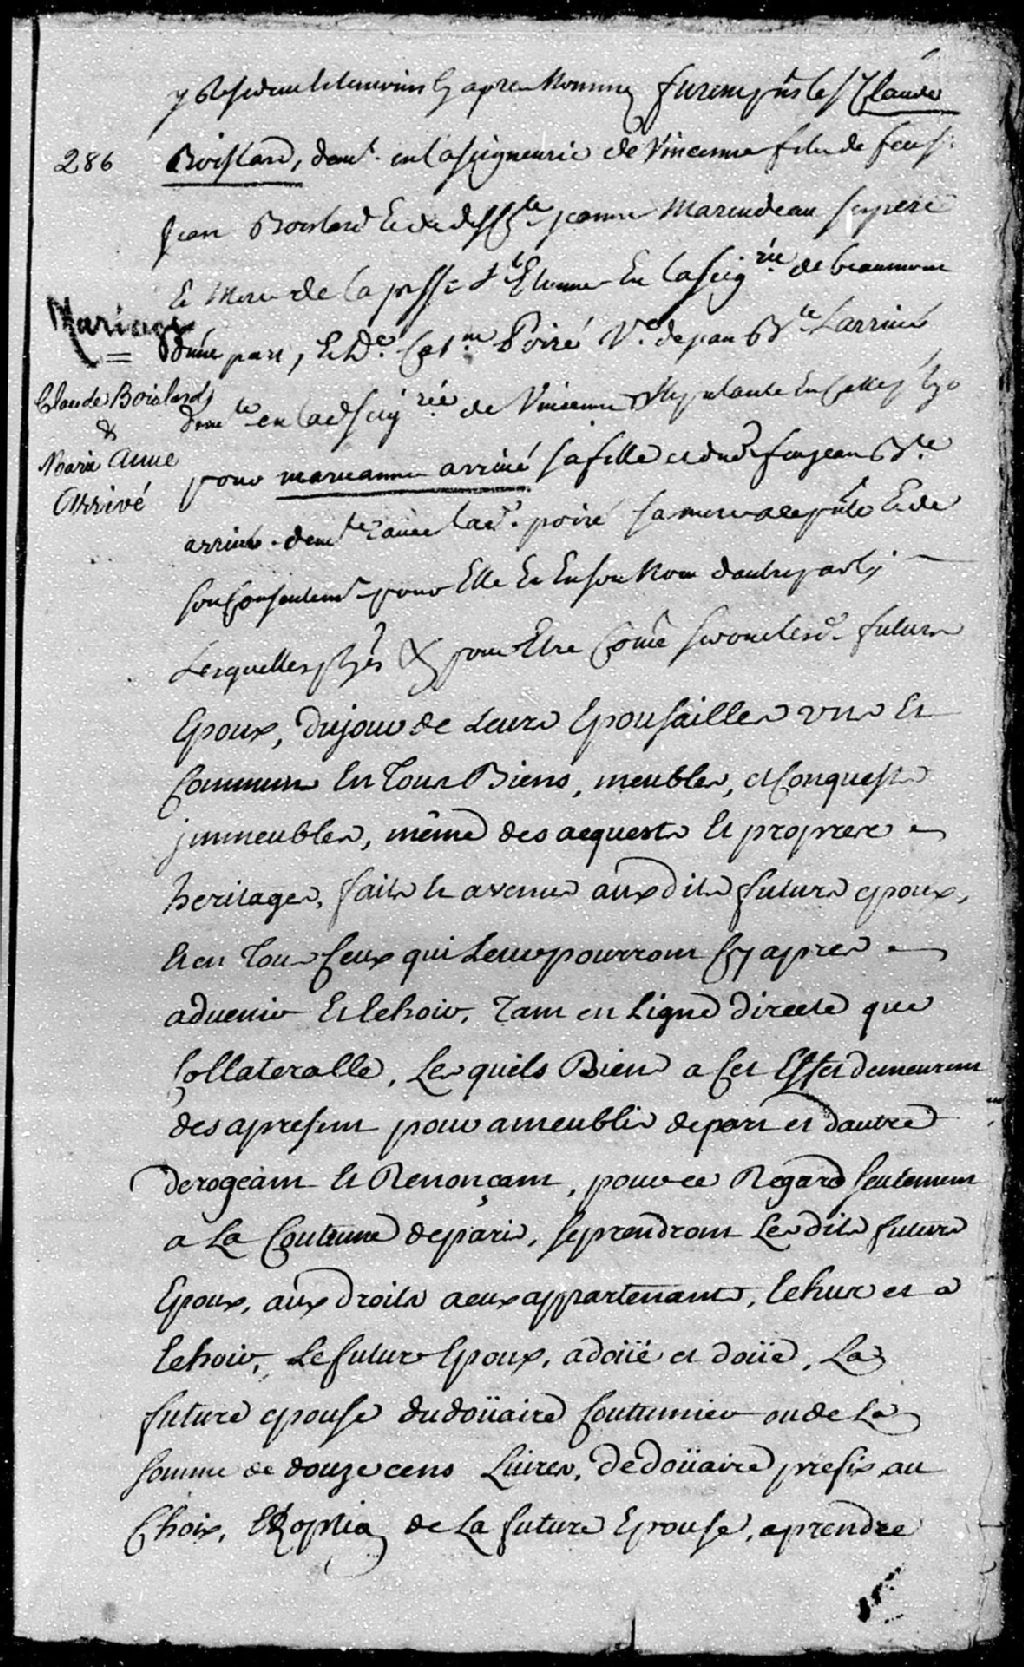 y Residens et temoins cy apres Nommez furent pñs le Sr Claude
286
Boislard, demt. en la seigneurie de Vincenne fils de feu Sr.
Jean Boislard et de deffte jeanne Marendeau ses pere
Et Mere de la psse St Etienne En la seigrie de beaumont
Mariage
=
d'une part, Et De. Catne Poiré Ve. de jean Bte Larrivé
Claude Boislard,
&
Marie Anne
Arrivé
demte en lad seigrie de Vincenne Stipulante En Celles
pour marieanne arrivé sa fille et dud. feu jean Bte
arrivé. demte avec lad. poiré sa mere a ce pñte Et de
son Consentemt pour Elle Et En son Nom d'autre part
Lesquelles pour Etre Come seront lesd. futurs
Epoux, du jour de Leurs Epousailles uns Et
Communs En Tous Biens, meubles, et Conquests
jmmeubles, même des acquests Et propres
heritages, faits et avenus auxdits futurs epoux,
Et en Tous Ceux qui Leur pourront Cy apres
advenir Et Echoir, Tant en Ligne directe que
Collateralle, Lesquels Biens a Cet Effet demeurent
des apresent pour ameublis de part et dautre
derogeant Et Renonçant, pour ce Regard seulement
a La Coutume de paris, se prendront Lesdits futurs
Epoux, aux droits a eux appartenants, Echus et a
Echoir, Le futur Epoux, a doüé et doüe, La
future epouse du doüaire Coutumier ou de La
somme de douze cens Livres, de doüaire prefix au
Choix, Et option de La future Epouse, a prendre